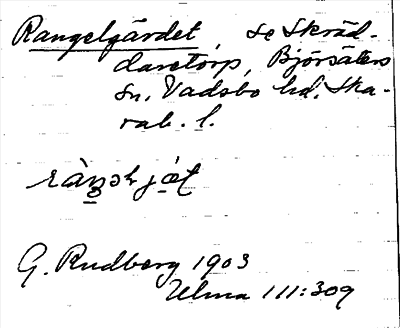 Rangelgärdet, se Skräd-
daretorp, Björsäters
sn. Vadsbo hd. Ska-
rab. l.
G. Rudberg 1903
Ulma 111:309